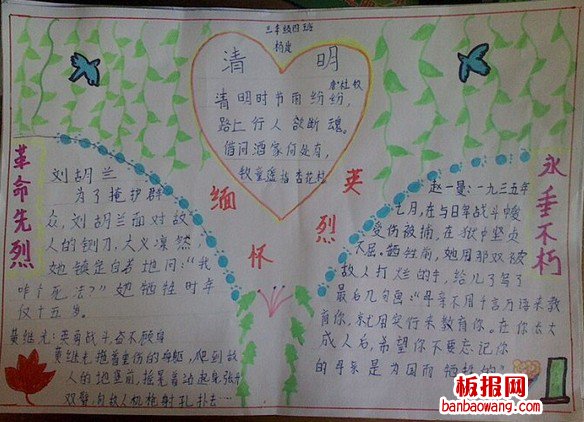 三年级四班
清 明
唐 杜牧
清明时节雨纷纷,
路上行人欲断魂。
借问酒家何处有,
牧童遥指杏花村
革命先烈
刘胡兰
为了掩护群
众,刘胡兰面对敌
人的铡刀,大义凛然,
她镇定自若地问:“我
咋个死法?”她牺牲时年
仅十五岁。
黄继光:英勇战斗奋不顾身
黄继光拖着重伤的身躯,爬到敌
人的地堡前,
双臂,向敌人机枪射孔扑去…
缅怀
英烈
永垂不朽
赵一曼:一九三五年
七月,在与日军战斗中
受伤被捕,在狱中坚贞
不屈,牺牲前,她用那双被
敌人打烂的手,给儿子写了
最后几句话:“母亲不用千言万语来教
育你,就用实行来教育你。在你长大
成人后,希望你不要忘记你
的母亲是为国而牺牲的!”
板报网
banbaowang.com